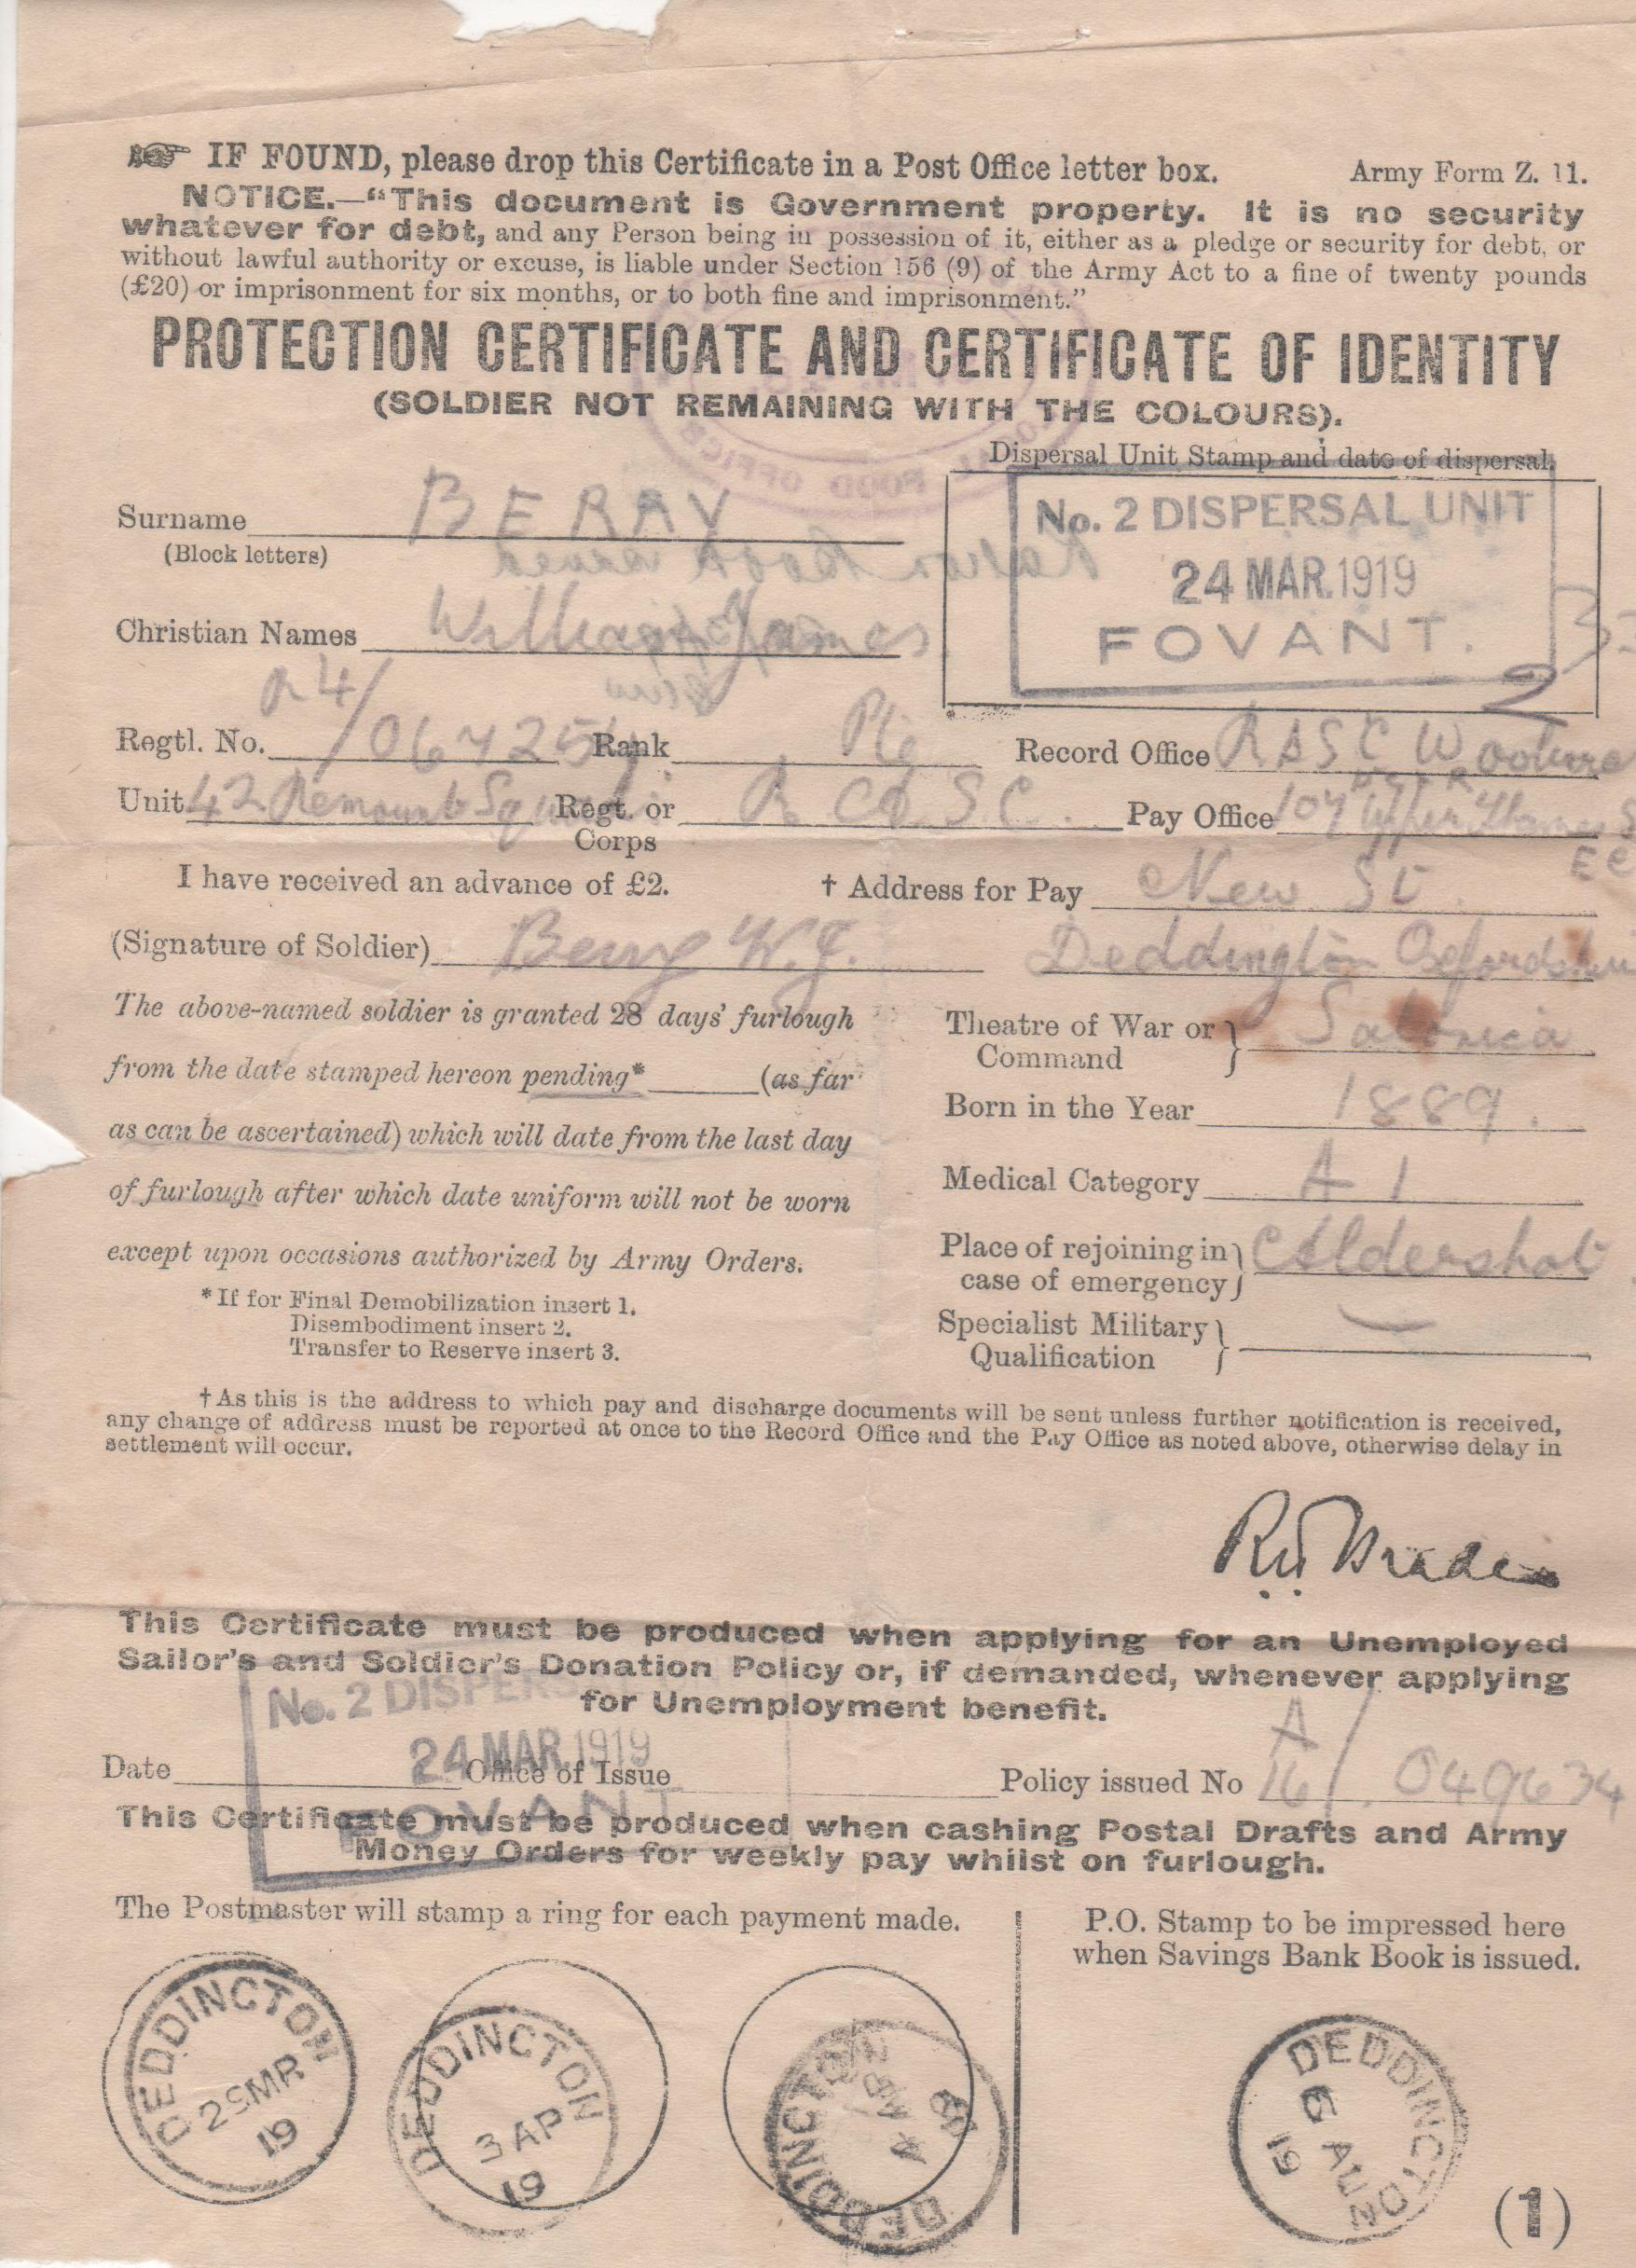 IF FOUND, please drop this Certificate in a Post Office letter box. Army Form Z. 11.
NOTICE.—“This document is Government property. It is no security
whatever for debt, and any Person being in possession of it, either as a pledge or security for debt, or
without lawful authority or excuse, is liable under Section 156 (9) of the Army Act to a fine of twenty pounds
(£20) or imprisonment for six months, or to both fine and imprisonment.”
PROTECTION CERTIFICATE AND CERTIFICATE OF IDENTITY
(SOLDIER NOT REMAINING WITH THE COLOURS).
Dispersal Unit Stamp and date of dispersal.
No. 2 DISPERSAL UNIT
24 MAR. 1919
FOVANT.
FOOD OFFICE
Surname BERRY
(Block letters)
Christian Names William James
Regtl. No. R4/ Rank Pte Record Office RASC
Unit 42 Remount Regt. or Corps R A S C. Pay Office 107 Upper Thames S
EC
I have received an advance of £2. † Address for Pay New St.
(Signature of Soldier) Berry W.J. Deddington
The above-named soldier is granted 28 days’ furlough
from the date stamped hereon pending* (as far
as can be ascertained) which will date from the last day
of furlough after which date uniform will not be worn
except upon occasions authorized by Army Orders.
*If for Final Demobilization insert 1.
Disembodiment insert 2.
Transfer to Reserve insert 3.
Theatre of War or Command Salonica
Born in the Year 1889.
Medical Category A 1
Place of rejoining in case of emergency Aldershot
Specialist Military Qualification —
† As this is the address to which pay and discharge documents will be sent unless further notification is received,
any change of address must be reported at once to the Record Office and the Pay Office as noted above, otherwise delay in
settlement will occur.
This Certificate must be produced when applying for an Unemployed
Sailor’s and Soldier’s Donation Policy or, if demanded, whenever applying
for Unemployment benefit.
No. 2 DISPERS
24 MAR. 1919
FOVANT
Date Office of Issue Policy issued No A/16/. 049634
This Certificate must be produced when cashing Postal Drafts and Army
Money Orders for weekly pay whilst on furlough.
The Postmaster will stamp a ring for each payment made.
P.O. Stamp to be impressed here
when Savings Bank Book is issued.
DEDDINGTON
29 MR
19
DEDDINGTON
3 AP
19
DEDDINGTON
DEDDINGTON
AU
19
(1)